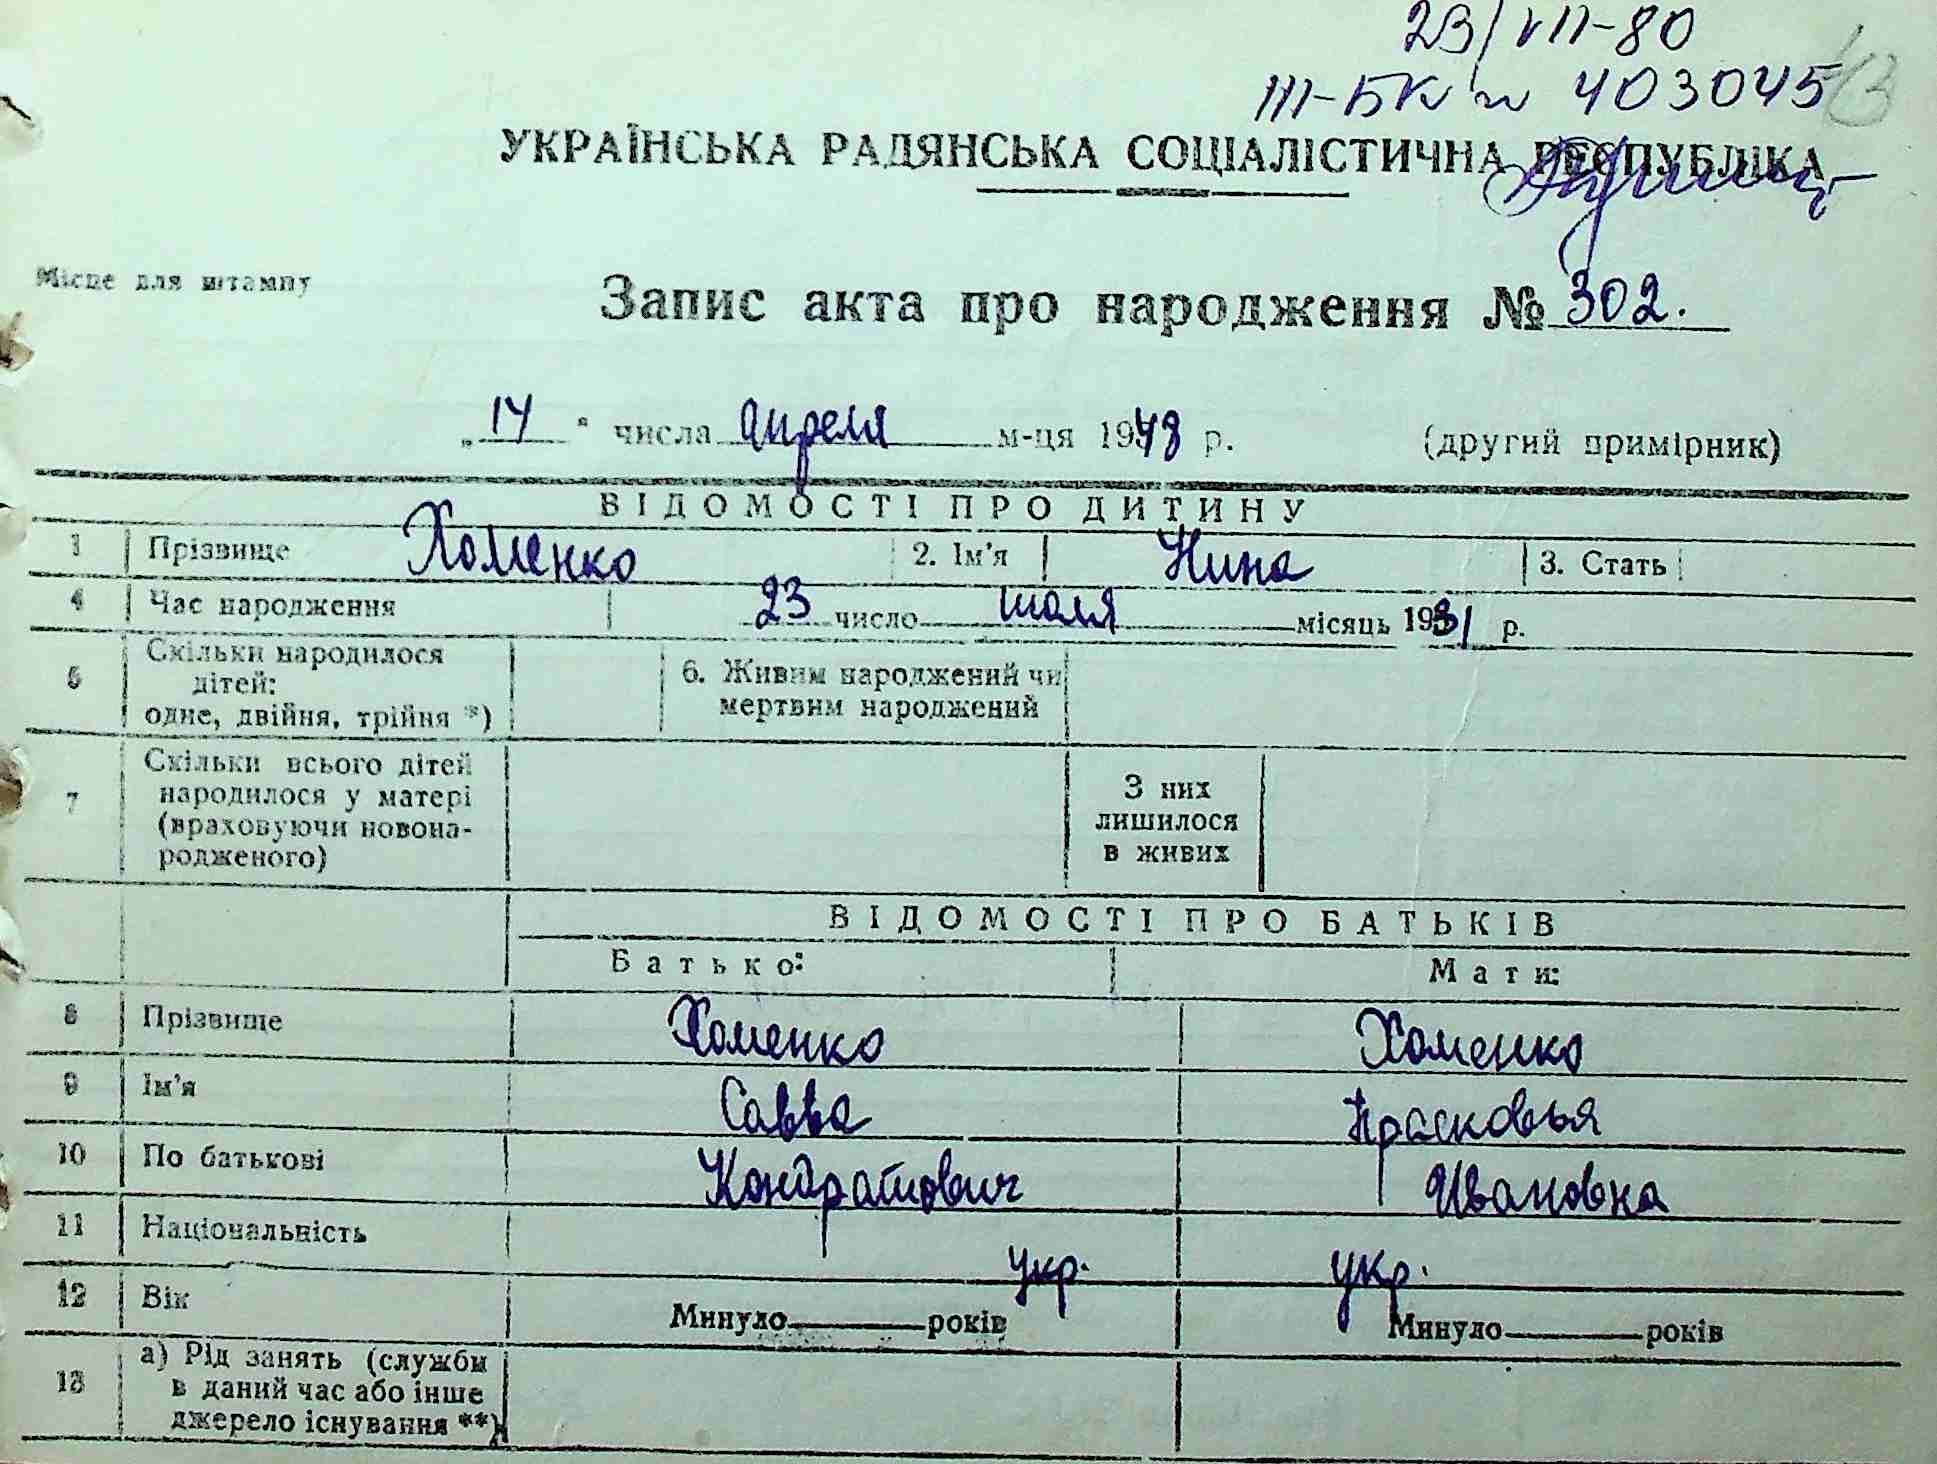 23/VII-80
III-БК № 403045
УКРАЇНСЬКА РАДЯНСЬКА СОЦІАЛІСТИЧНА РЕСПУБЛІКА
Місце для штампу
Запис акта про народження № 302.
„14“ числа апреля м-ця 1948 р. (другий примірник)
ВІДОМОСТІ ПРО ДИТИНУ
1 Прізвище Хоменко 2. Ім'я Нина 3. Стать
4 Час народження 23 число июля місяць 1931 р.
5 Скільки народилося дітей: одне, двійня, трійня *) 6. Живим народжений чи мертвим народжений
7 Скільки всього дітей народилося у матері (враховуючи новонародженого) З них лишилося в живих
ВІДОМОСТІ ПРО БАТЬКІВ
Батько: Мати:
8 Прізвище Хоменко Хоменко
9 Ім'я Савва Прасковья
10 По батькові Кондратович Ивановна
11 Національність укр. укр.
12 Вік Минуло років Минуло років
13 а) Рід занять (служби в даний час або інше джерело існування **)